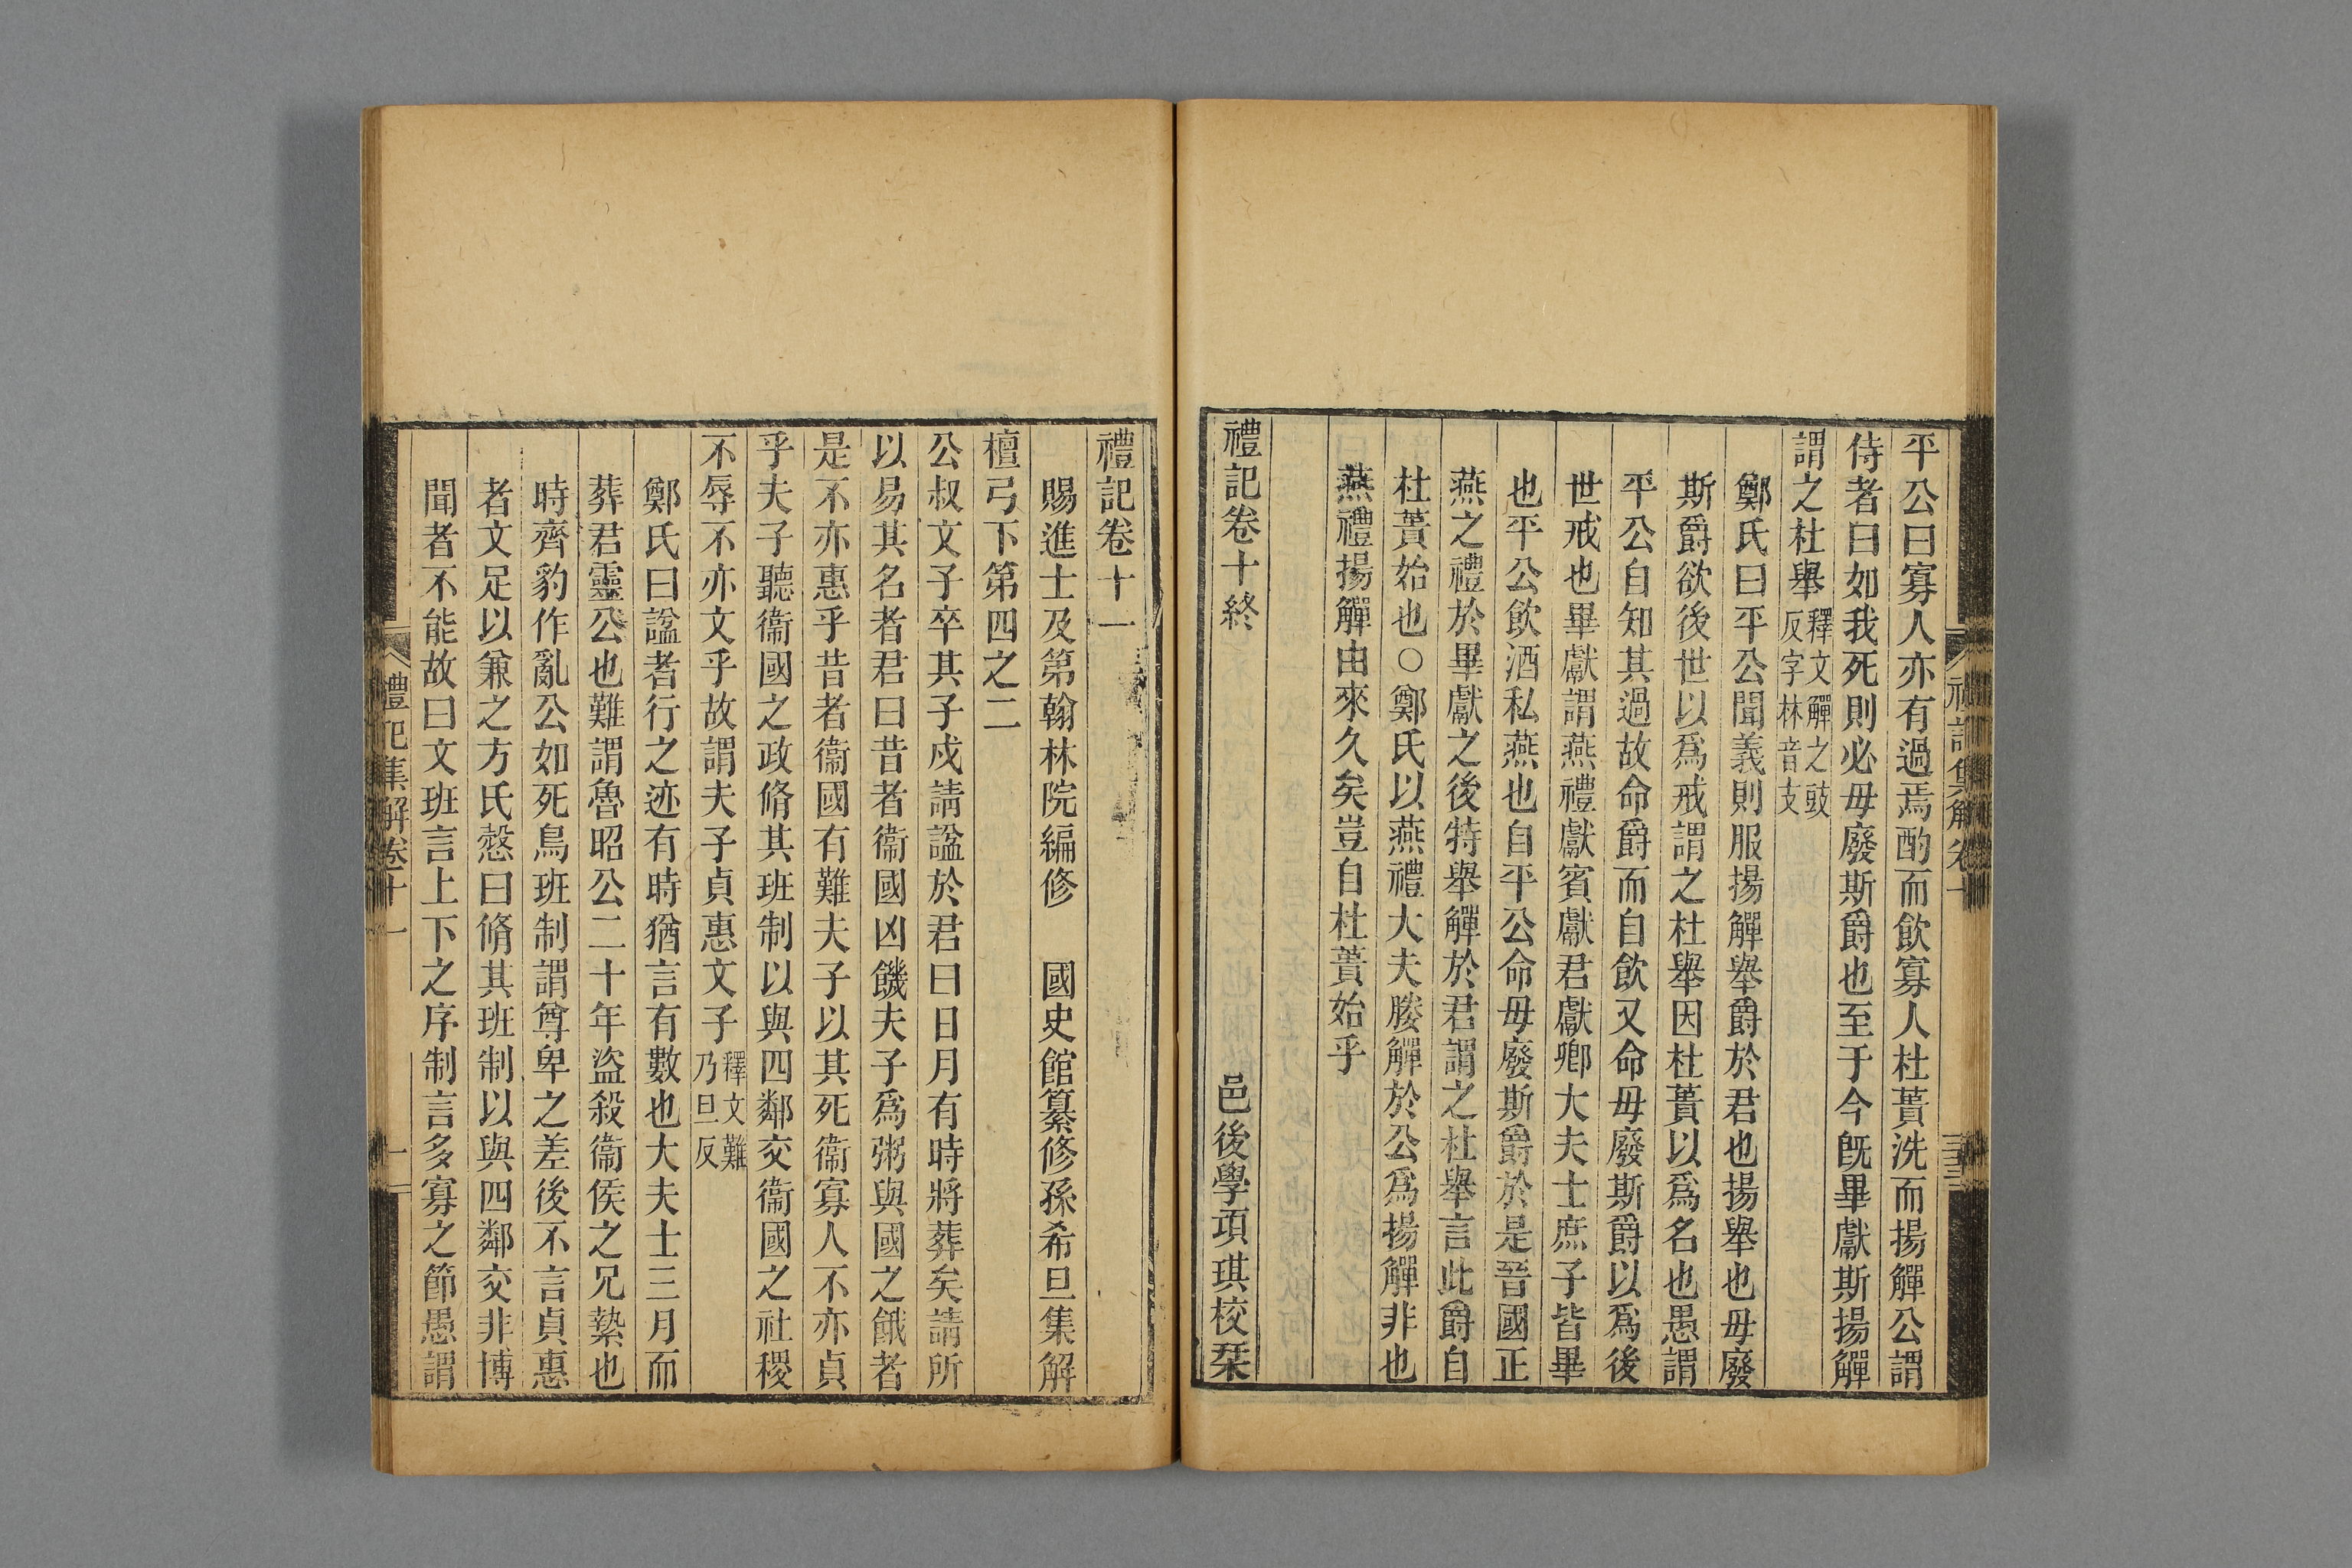 平公曰寡人亦有過焉酌而飲寡人杜蕢洗而揚觶公謂
侍者曰如我死則必毋廢斯爵也至于今旣畢獻斯揚觶
謂之杜舉釋文觶之豉反字林音支
鄭氏曰平公聞義則服揚觶舉爵於君也揚舉也毋廢
斯爵欲後世以爲戒謂之杜舉因杜蕢以爲名也愚謂
平公自知其過故命爵而自飲又命毋廢斯爵以爲後
世戒也畢獻謂燕禮獻賓獻君獻卿大夫士庶子皆畢
也平公飲酒私燕也自平公命毋廢斯爵於是晉國正
燕之禮於畢獻之後特舉觶於君謂之杜舉言此爵自
杜蕢始也○鄭氏以燕禮大夫媵觶於公爲揚觶非也
燕禮揚觶由來久矣豈自杜蕢始乎
禮記卷十終 邑後學項琪校栞
禮記卷十一
賜進士及第翰林院編修 國史館纂修孫希旦集解
檀弓下第四之二
公叔文子卒其子戍請諡於君曰日月有時將葬矣請所
以易其名者君曰昔者衞國凶饑夫子爲粥與國之餓者
是不亦惠乎昔者衞國有難夫子以其死衞寡人不亦貞
乎夫子聽衞國之政脩其班制以與四鄰交衞國之社稷
不辱不亦文乎故謂夫子貞惠文子釋文難乃旦反
鄭氏曰諡者行之迹有時猶言有數也大夫士三月而
葬君靈公也難謂魯昭公二十年盜殺衞侯之兄縶也
時齊豹作亂公如死鳥班制謂尊卑之差後不言貞惠
者文足以兼之方氏慤曰脩其班制以與四鄰交非博
聞者不能故曰文班言上下之序制言多寡之節愚謂
禮記集解卷十一